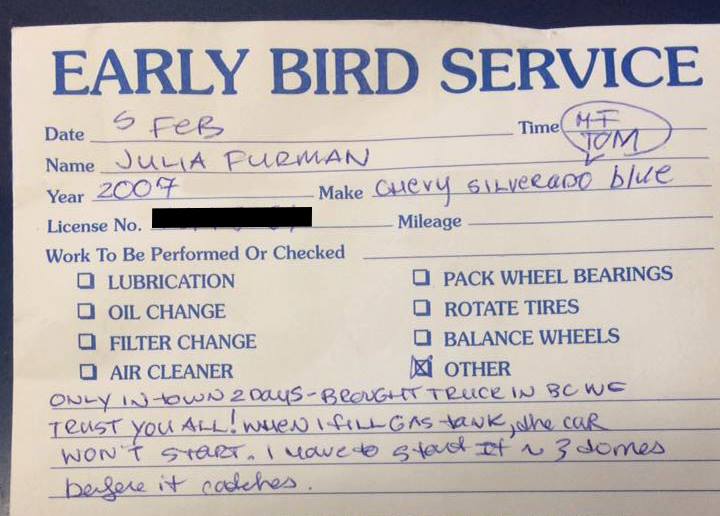 EARLY BIRD SERVICE
Date 5 FEB Time M-F
TOM
Name JULIA FURMAN
Year 2007 Make CHEVY SILVERADO blue
License No. Mileage
Work To Be Performed Or Checked
LUBRICATION PACK WHEEL BEARINGS
OIL CHANGE ROTATE TIRES
FILTER CHANGE BALANCE WHEELS
AIR CLEANER ☒ OTHER
ONLY IN-town 2 DAYS - BROUGHT TRUCK IN BC WE
TRUST YOU ALL! WHEN I fill GAS tANK, the CAR
WON'T START. I HAVE to start It ~ 3 tomes
before it catches.